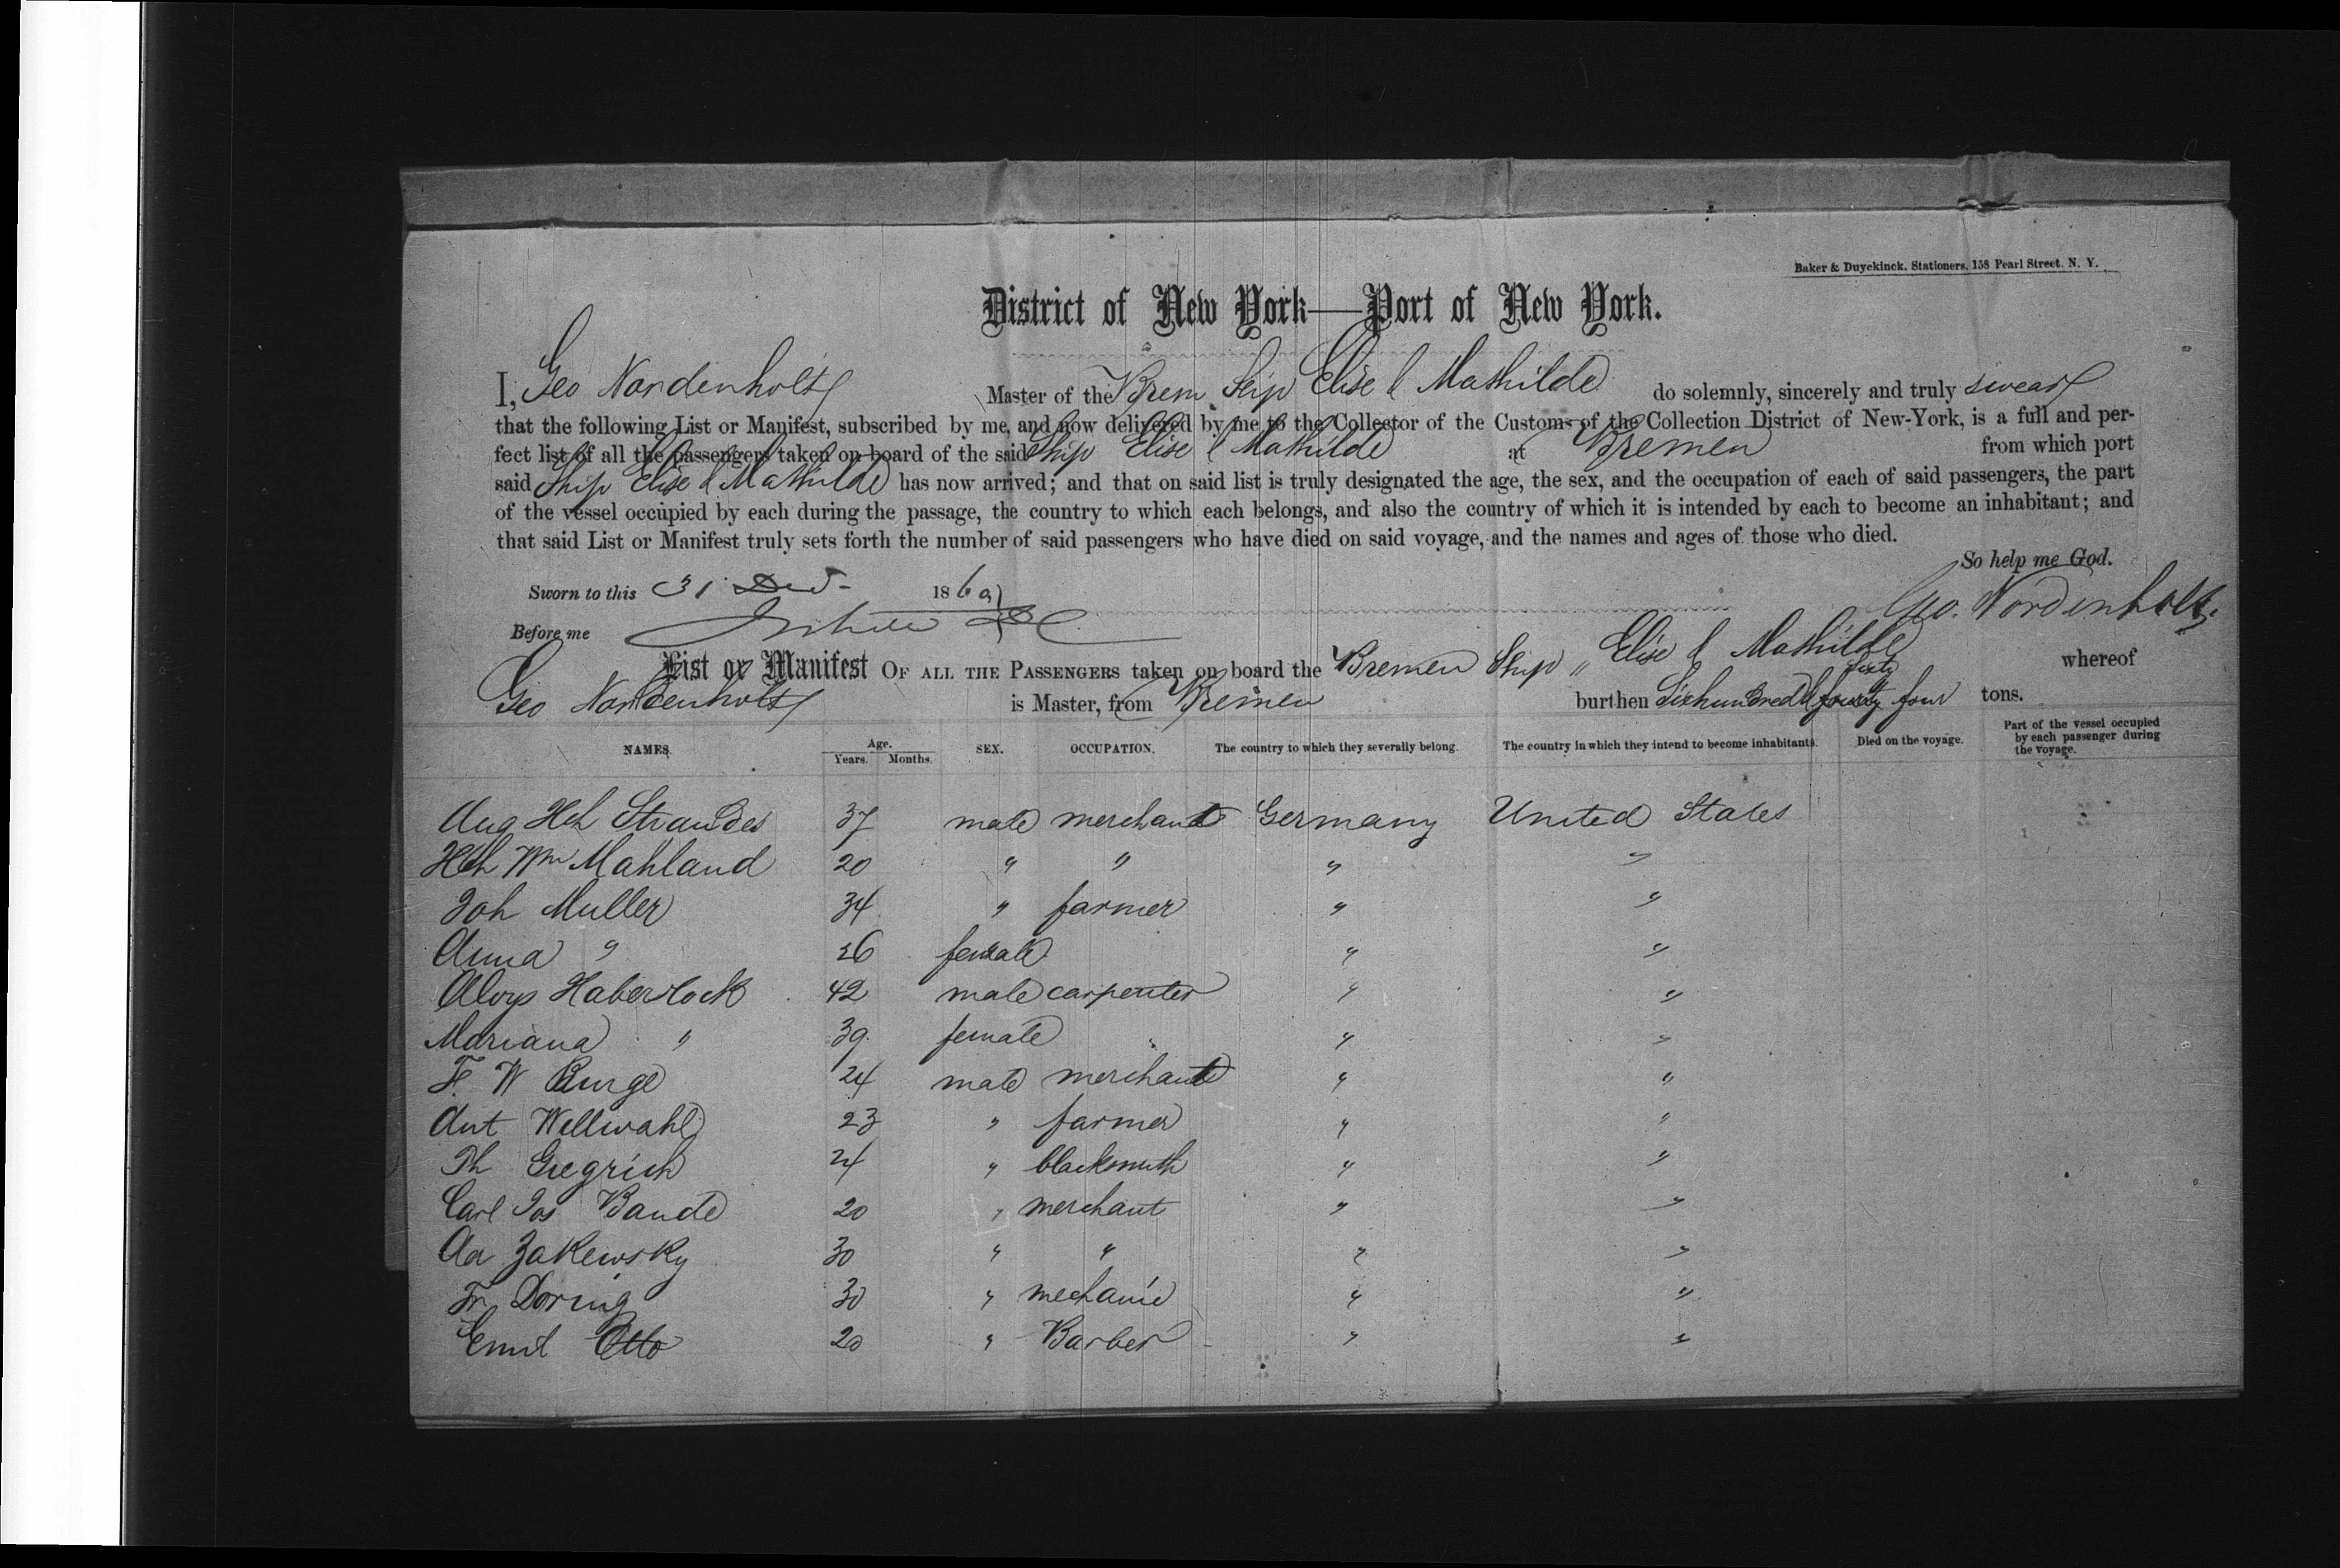 Baker & Duyckinck, Stationers, 158 Pearl Street, N. Y.
District of New York—Port of New York.
I, Geo Nordenholtz Master of the Brem Ship Elise & Mathilde do solemnly, sincerely and truly swear
that the following List or Manifest, subscribed by me, and now delivered by me to the Collector of the Customs of the Collection District of New-York, is a full and per-
fect list of all the passengers taken on board of the said Ship Elise & Mathilde at Bremen from which port
said Ship Elise & Mathilde has now arrived; and that on said list is truly designated the age, the sex, and the occupation of each of said passengers, the part
of the vessel occupied by each during the passage, the country to which each belongs, and also the country of which it is intended by each to become an inhabitant; and
that said List or Manifest truly sets forth the number of said passengers who have died on said voyage, and the names and ages of those who died.
So help me God.
Sworn to this 31 Dec 1869
Geo. Nordenholtz.
Before me
List or Manifest OF ALL THE PASSENGERS taken on board the Bremen Ship „ Elise & Mathilde whereof
Geo Nordenholtz is Master, from Bremen burthen Sixhundred & four tons.
NAMES. Age. Years. Months. SEX. OCCUPATION. The country to which they severally belong. The country in which they intend to become inhabitants. Died on the voyage. Part of the vessel occupied by each passenger during the voyage.
Aug Hch Strandes 37 male merchant Germany United States
Hch Wm Mahland 20 " " " "
Joh Muller 34 " farmer " "
Anna " 26 female " "
Aloys Haberlock 42 male carpenter " "
Mariana " 39 female " "
F. W Runge 24 male merchant " "
Ant Wellwahl 23 " farmer " "
Th Gregrich 24 " blacksmith " "
Carl Jos Baude 20 " merchant " "
Aa Zakewsky 30 " " " "
Fr Doring 30 " mechanic " "
Emil Otto 20 " Barber " "